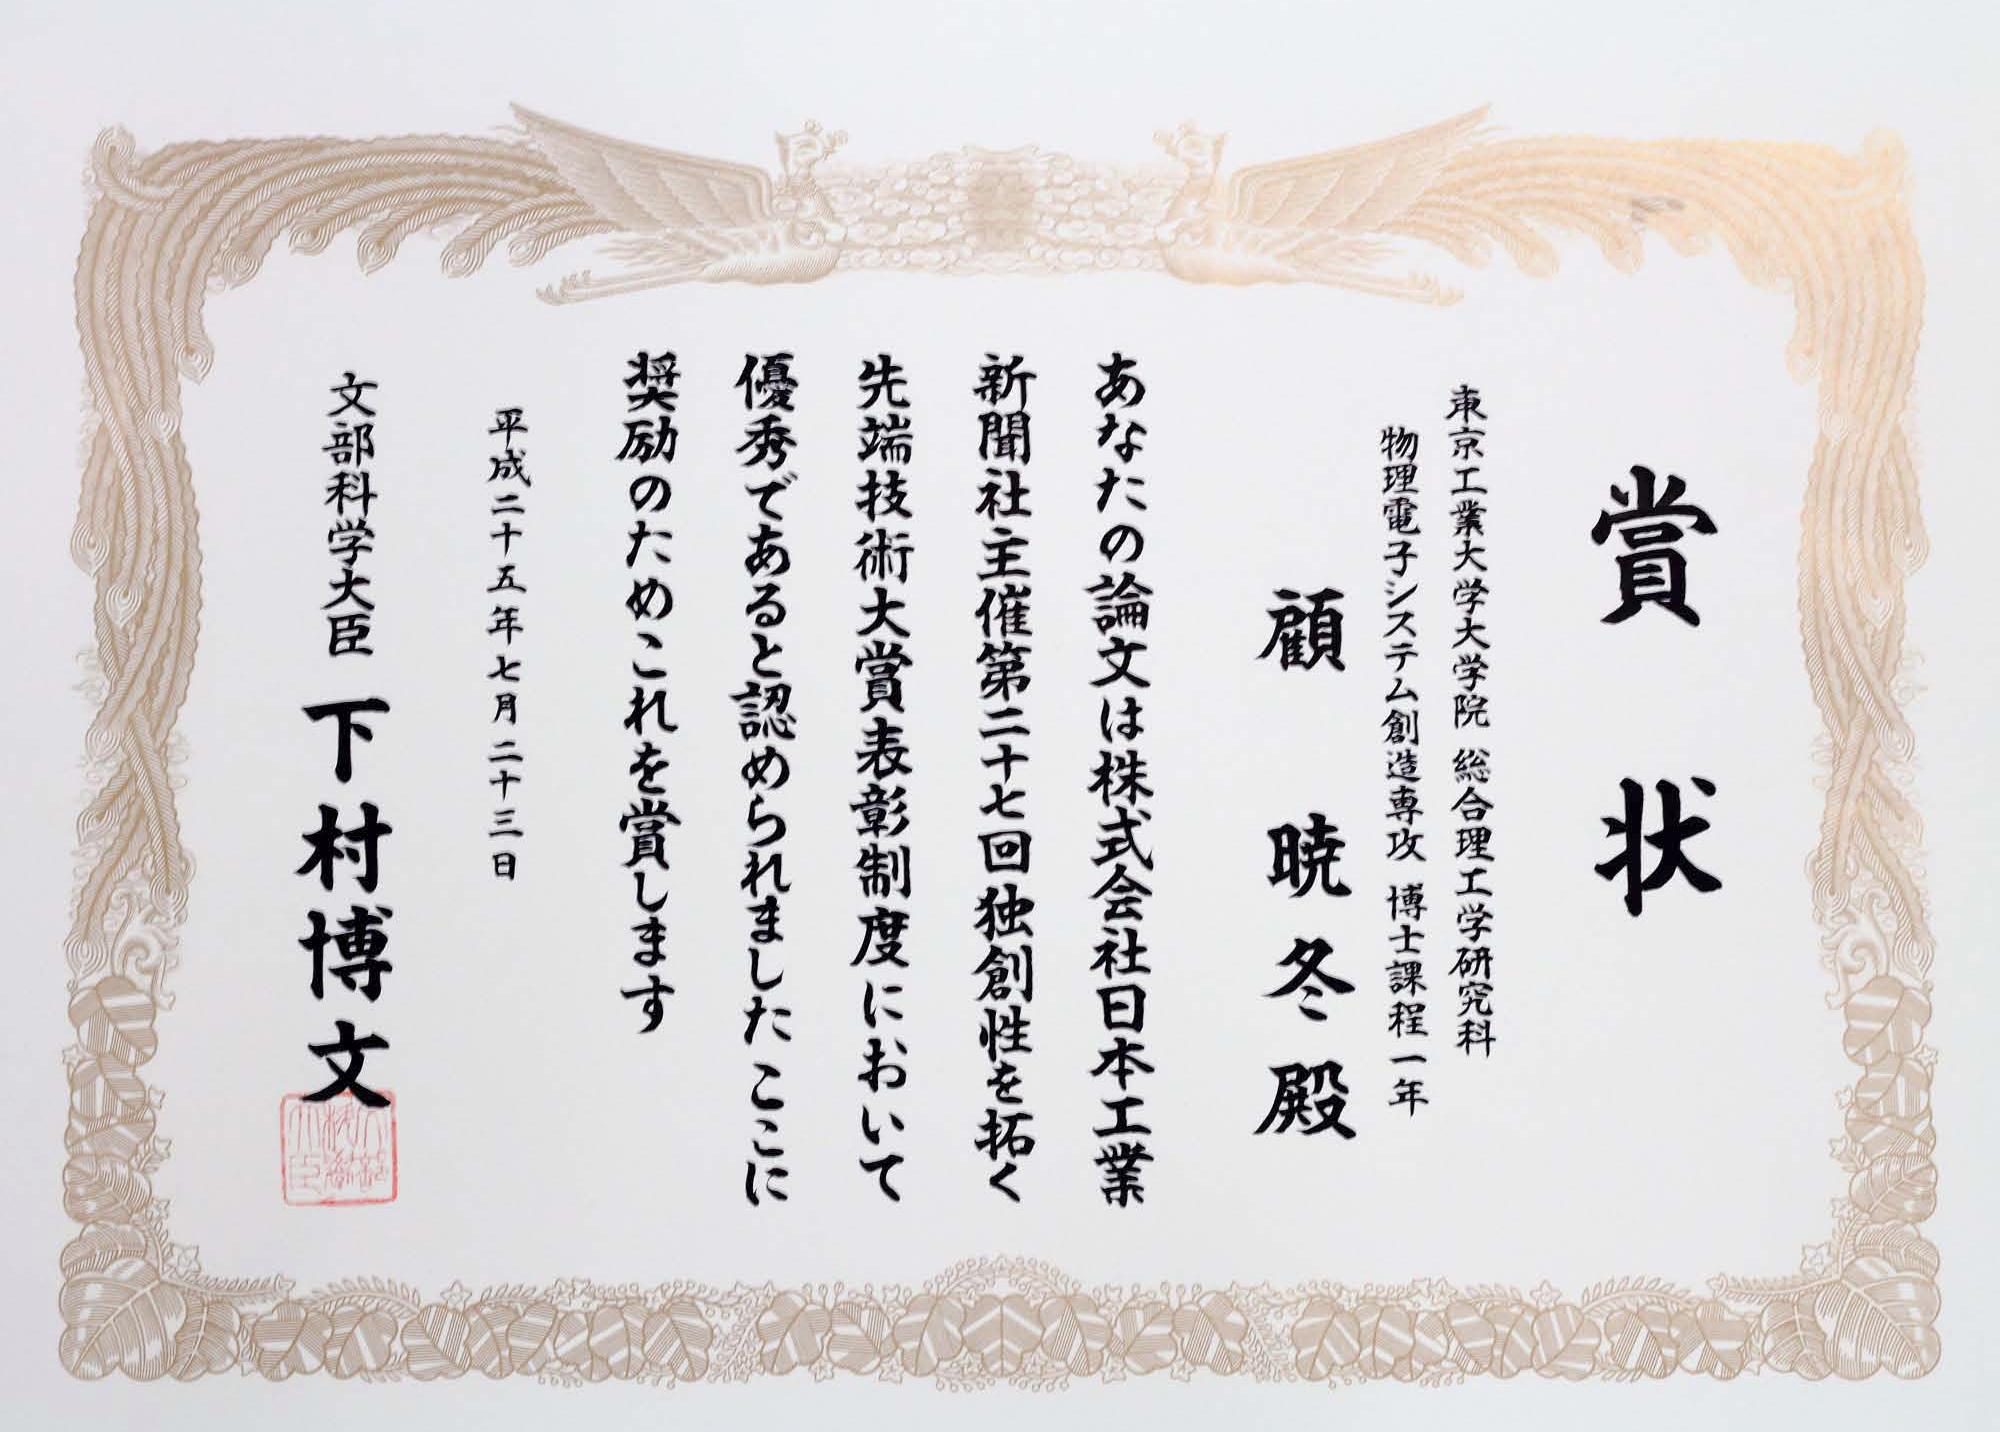 賞状
東京工業大学大学院 総合理工学研究科
物理電子システム創造専攻 博士課程一年
顧 暁冬殿
あなたの論文は株式会社日本工業
新聞社主催第二十七回独創性を拓く
先端技術大賞表彰制度において
優秀であると認められました ここに
奨励のためこれを賞します
平成二十五年七月二十三日
文部科学大臣 下村博文